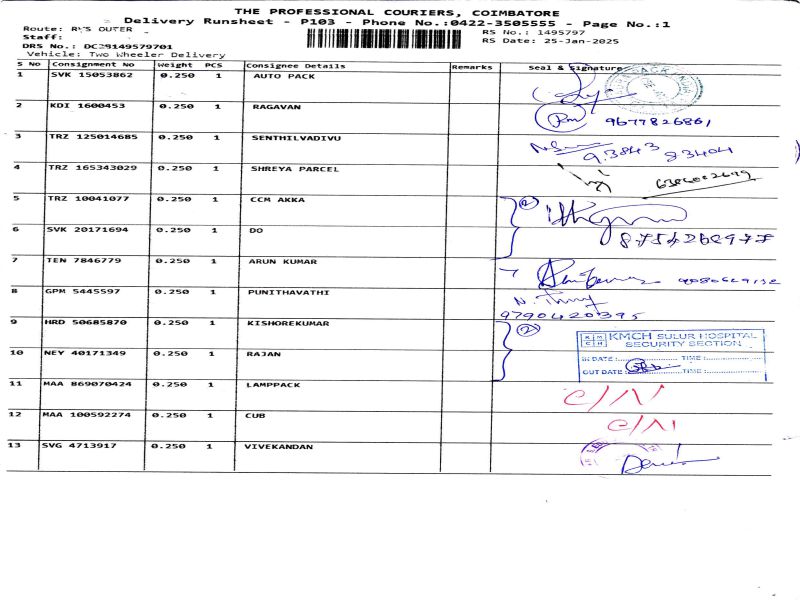 THE PROFESSIONAL COURIERS, COIMBATORE
Delivery Runsheet - P103 - Phone No.:0422-3505555 - Page No.:1
Route: R'S OUTER
RS No.: 1495797
Staff:
RS Date: 25-Jan-2025
DRS No.: DC29149579701
Vehicle: Two Wheeler Delivery
S No Consignment No Weight PCS Consignee Details Remarks Seal & Signature
1 SVK 15053862 0.250 1 AUTO PACK
2 KDI 1600453 0.250 1 RAGAVAN 9677826861
3 TRZ 125014685 0.250 1 SENTHILVADIVU 9.3843 83404
4 TRZ 165343029 0.250 1 SHREYA PARCEL
5 TRZ 10041077 0.250 1 CCM AKKA
6 SVK 20171694 0.250 1 DO
7 TEN 7846779 0.250 1 ARUN KUMAR
8 GPM 5445597 0.250 1 PUNITHAVATHI 9790420395
9 HRD 50685870 0.250 1 KISHOREKUMAR
KMCH SULUR HOSPITAL
SECURITY SECTION
IN DATE: TIME:
10 NEY 40171349 0.250 1 RAJAN
OUT DATE: TIME:
11 MAA 869070424 0.250 1 LAMPPACK
C/N
12 MAA 100592274 0.250 1 CUB
C/N
13 SVG 4713917 0.250 1 VIVEKANDAN